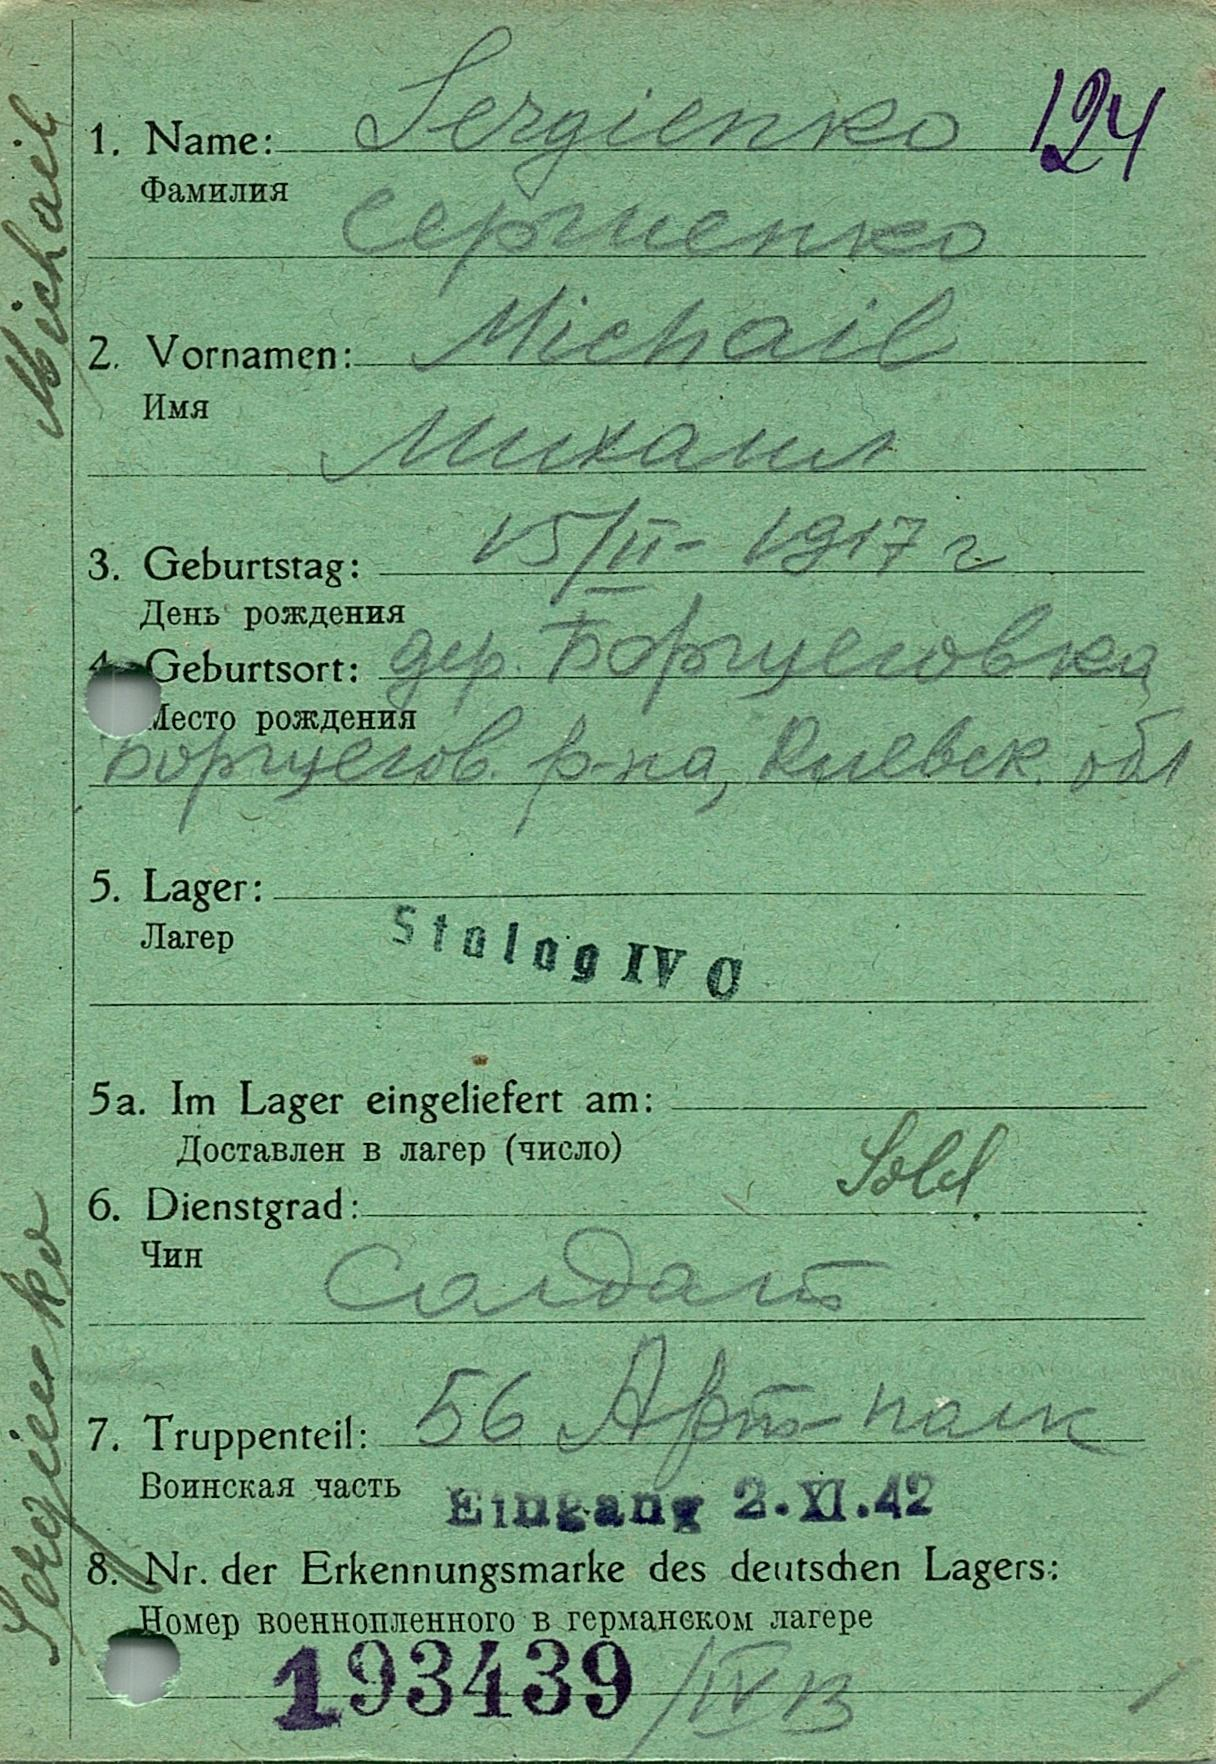 Sergienko 124
1. Name:
Фамилия
Сергиенко
2. Vornamen: Michail
Имя
Михаил
3. Geburtstag: 15/II- 1917 г
День рождения
4. Geburtsort: дер.
Место рождения
р-на, Киевск. обл
5. Lager:
Лагер
Stalag IV
5a. Im Lager eingeliefert am:
Доставлен в лагер (число)
Sold
6. Dienstgrad:
Чин
Солдат
7. Truppenteil: 56 Арт-
Воинская часть
Eingang 2.XI.42
8. Nr. der Erkennungsmarke des deutschen Lagers:
Номер военнопленного в германском лагере
193439 /IV B
Sergienko Michail